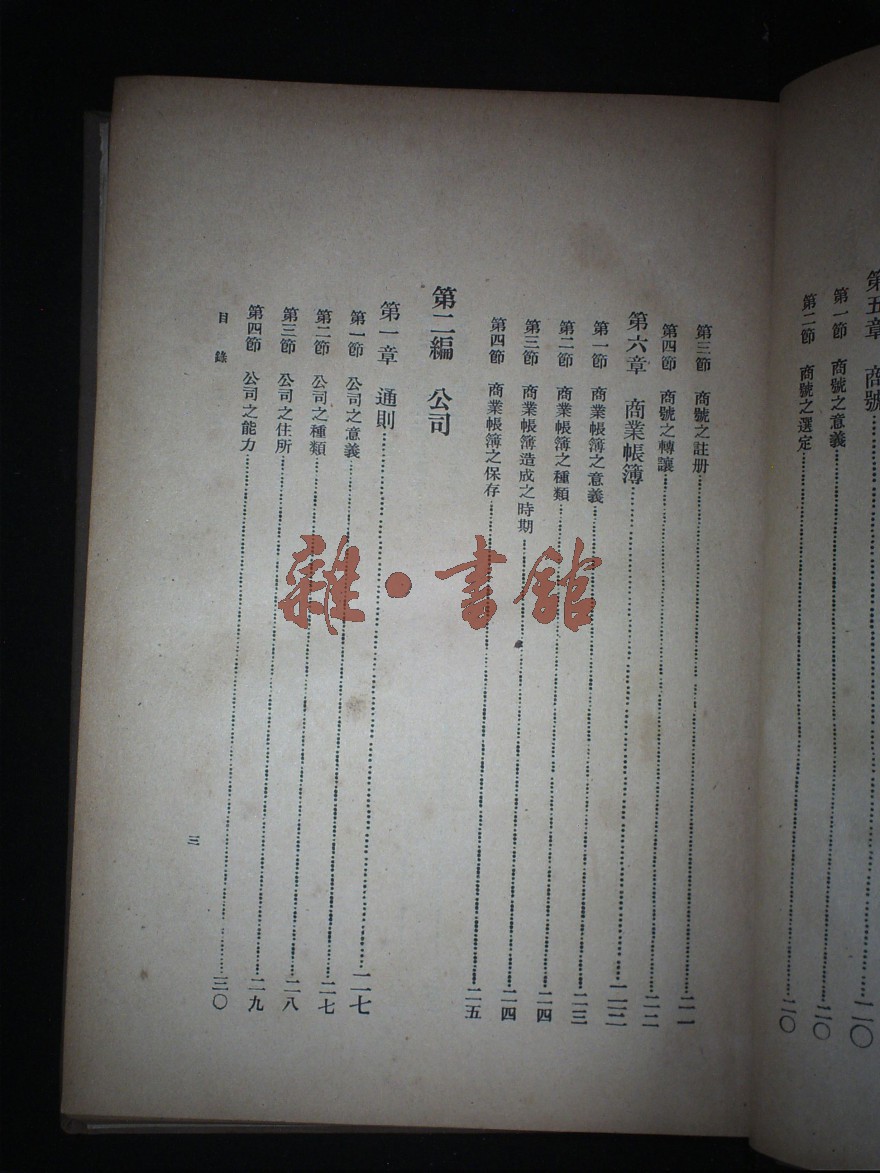 第五章　商號……二〇
第一節　商號之意義……二〇
第二節　商號之選定……二〇
第三節　商號之註册……二一
第四節　商號之轉讓……二二
第六章　商業帳簿……二三
第一節　商業帳簿之意義……二三
第二節　商業帳簿之種類……二四
第三節　商業帳簿造成之時期……二四
第四節　商業帳簿之保存……二五
第二編　公司
第一章　通則……二七
第一節　公司之意義……二七
第二節　公司之種類……二八
第三節　公司之住所……二九
第四節　公司之能力……三〇
目錄
三
雜·書館